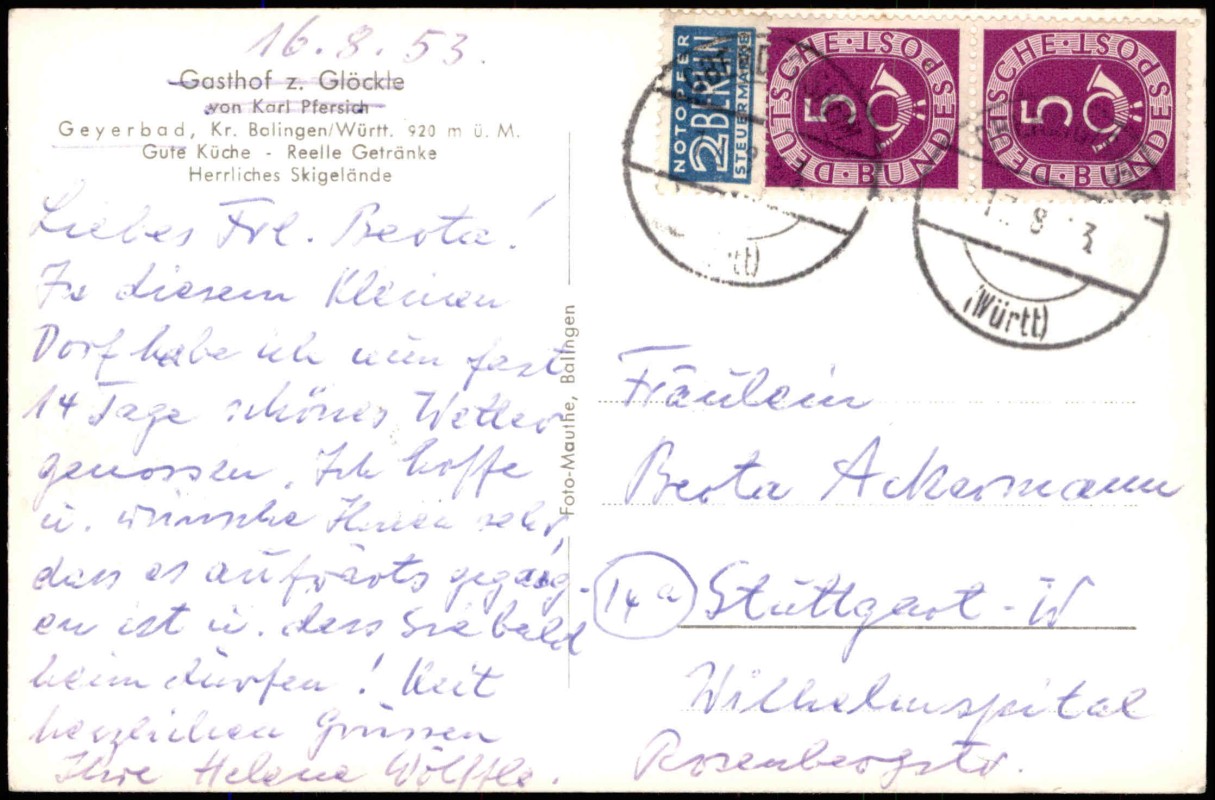 16.8.53.
Gasthof z. Glöckle
von Karl Pfersich
Geyerbad, Kr. Balingen/Württ. 920 m ü. M.
Gute Küche - Reelle Getränke
Herrliches Skigelände
Liebes Frl. Berta!
In diesem kleinen
Dorf habe ich nun fast
14 Tage schönes Wetter
genossen. Ich hoffe
u. wünsche Ihnen sehr,
dass es aufwärts gegang-
en ist u. dass Sie bald
heim dürfen! Mit
herzlichen Grüssen
Ihre Helene Wölffle.
Foto-Mauthe, Balingen
NOTOPFER
2 BERLIN
STEUERMARKE
DEUTSCHE BUNDESPOST
5
DEUTSCHE BUNDESPOST
5
(Württ)
8
Fräulein
Berta Ackermann
14a Stuttgart-W
Wilhelmspital
Rosenbergstr.